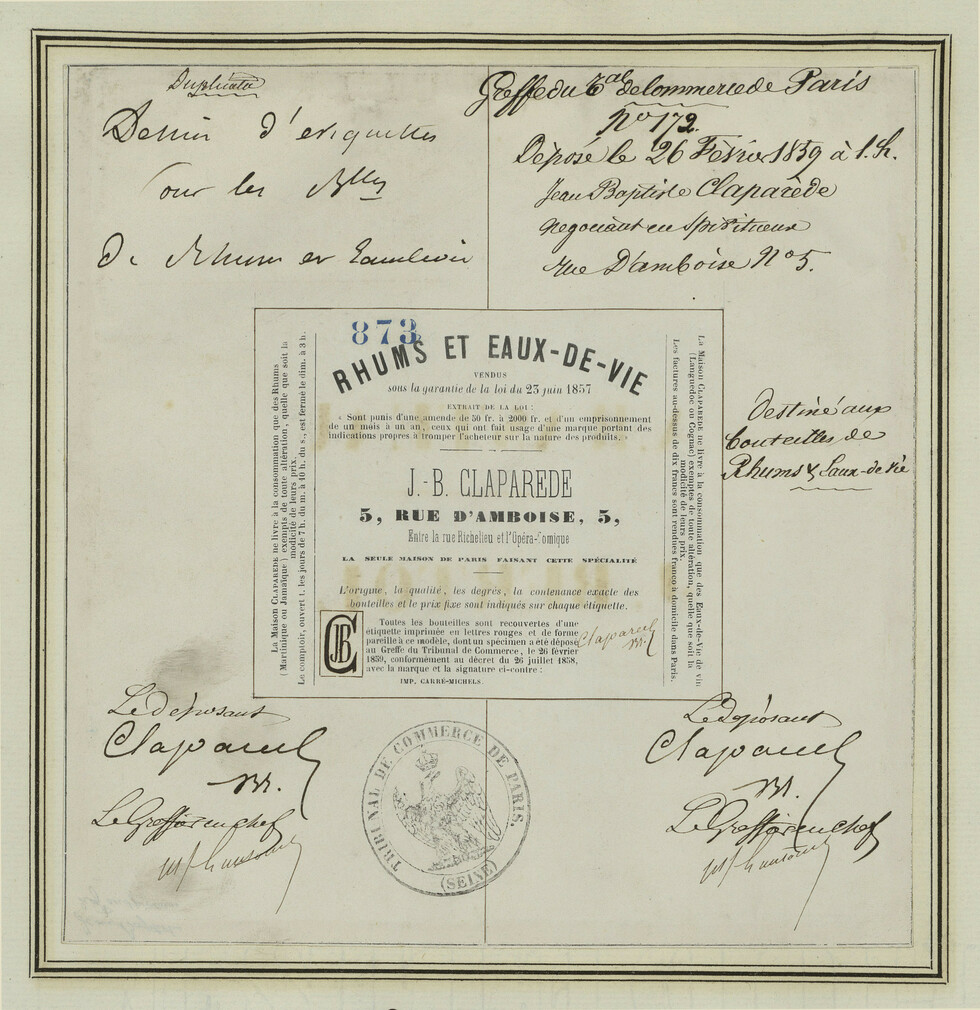 Duplicata
Dessin d'etiquettes
Pour les Blles
De Rhum et Eau de vie
Greffe du Tal de Commerce de Paris
No 172.
Déposé le 26 Février 1859 à 1. h.
Jean Baptiste Claparède
négociant en Spiritueux
rue D'amboise No 5.
873
RHUMS ET EAUX-DE-VIE
VENDUS
sous la garantie de la loi du 23 juin 1857
EXTRAIT DE LA LOI :
« Sont punis d'une amende de 50 fr. à 2000 fr. et d'un emprisonnement
de un mois à un an, ceux qui ont fait usage d'une marque portant des
indications propres à tromper l'acheteur sur la nature des produits. »
J.-B. CLAPAREDE
5, RUE D'AMBOISE, 5,
Entre la rue Richelieu et l'Opéra-Comique
LA SEULE MAISON DE PARIS FAISANT CETTE SPÉCIALITÉ
L'origine, la qualité, les degrés, la contenance exacte des
bouteilles et le prix fixe sont indiqués sur chaque étiquette.
JBC
Toutes les bouteilles sont recouvertes d'une
etiquette imprimée en lettres rouges et de forme
pareille à ce modèle, dont un spécimen a été déposé
au Greffe du Tribunal de Commerce, le 26 février
1859, conformément au décret du 26 juillet 1858,
avec la marque et la signature ci-contre :
IMP. CARRÉ-MICHELS.
La Maison CLAPAREDE ne livre à la consommation que des Rhums
(Martinique ou Jamaïque) exempts de toute altération, quelle que soit la
modicité de leurs prix.
Le comptoir, ouvert t. les jours de 7 h. du m. à 10 h. du s., est fermé le dim. à 3 h.
La Maison CLAPAREDE ne livre à la consommation que des Eaux-de-Vie de vin
(Languedoc ou Cognac) exemptes de toute altération, quelle que soit la
modicité de leurs prix.
Les factures au-dessus de dix francs sont rendues franco à domicile dans Paris.
Destiné aux
bouteilles de
Rhums & Eaux-de-vie
Le déposant
Le Greffier en chef
TRIBUNAL DE COMMERCE DE PARIS.
(SEINE)
Le Déposant
Le Greffier en chef